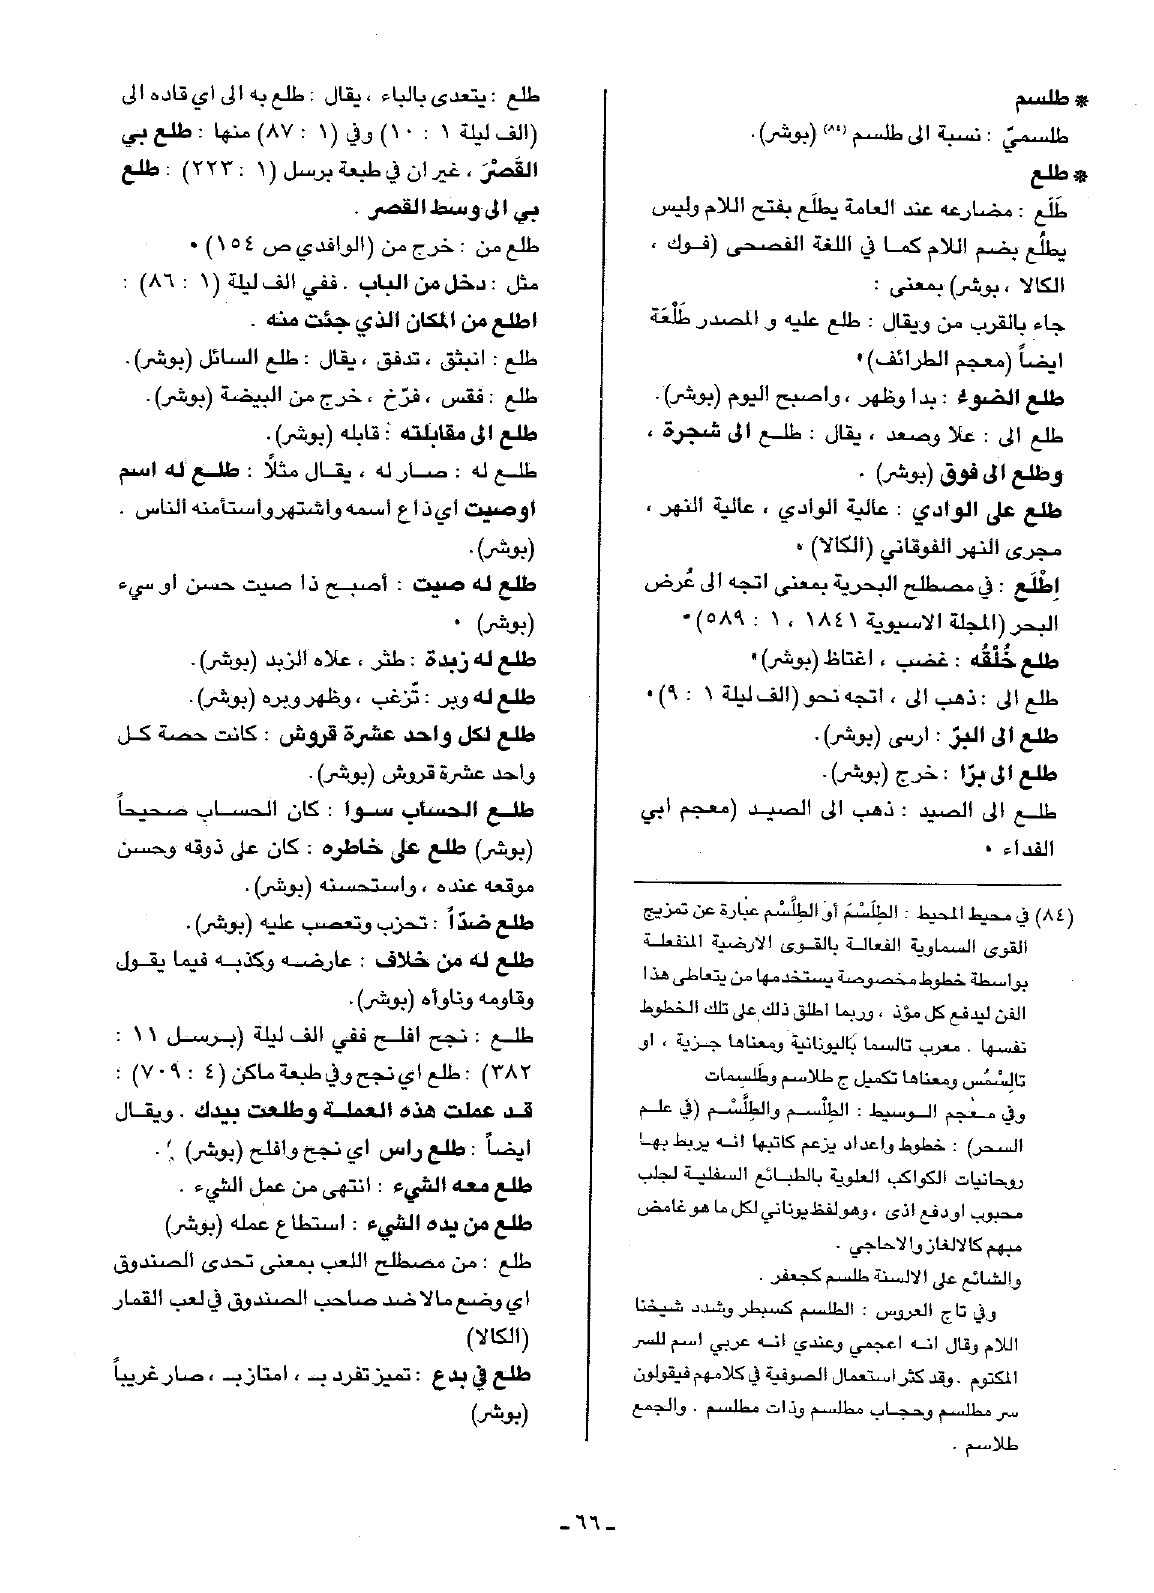 * طلسم
طلسميّ : نسبة الى طلسم (٨٤) (بوشر).
* طلع
طَلَع : مضارعه عند العامة يطلَع بفتح اللام وليس
يطلُع بضم اللام كما في اللغة الفصحى (فوك ،
الكالا ، بوشر) بمعنى :
جاء بالقرب من ويقال : طلع عليه و المصدر طَلْعَة
ايضاً (معجم الطرائف)٠
طلع الضوء : بدا وظهر ، واصبح اليوم (بوشر).
طلع الى : علا وصعد ، يقال : طلع الى شجرة ،
وطلع الى فوق (بوشر) .
طلع على الوادي : عالية الوادي ، عالية النهر ،
مجرى النهر الفوقاني (الكالا) ٠
اِطْلَع : في مصطلح البحرية بمعنى اتجه الى عُرض
البحر (المجلة الاسيوية ١٨٤١ ، ١ : ٥٨٩)٠
طلع خُلْقُه : غضب ، اغتاظ (بوشر)٠
طلع الى : ذهب الى ، اتجه نحو (الف ليلة ١ : ٩)٠
طلع الى البرّ : ارسى (بوشر).
طلع الى برّا : خرج (بوشر).
طلع الى الصيد : ذهب الى الصيد (معجم ابي
الفداء ٠
(٨٤) في محيط المحيط : الطِلَسْمَ أو الطِلَّسْم عبارة عن تمزيج
القوى السماوية الفعالة بالقوى الارضية المنفعلة
بواسطة خطوط مخصوصة يستخدمها من يتعاطى هذا
الفن ليدفع كل مؤذ ، وربما اطلق ذلك على تلك الخطوط
نفسها . معرب تالسما باليونانية ومعناها جزية ، او
تالسْمُس ومعناها تكميل ج طلاسم وطلسمات
وفي معجم الوسيط : الطلْسم والطلَّسْم (في علم
السحر) : خطوط واعداد يزعم كاتبها انه يربط بها
روحانيات الكواكب العلوية بالطبائع السفلية لجلب
محبوب او دفع اذى ، وهو لفظ يوناني لكل ما هو غامض
مبهم كالالغاز والاحاجي .
والشائع على الالسنة طلسم كجعفر .
وفي تاج العروس : الطلسم كسبطر وشدد شيخنا
اللام وقال انه اعجمي وعندي انه عربي اسم للسر
المكتوم . وقد كثر استعمال الصوفية في كلامهم فيقولون
سر مطلسم وحجاب مطلسم وذات مطلسم . والجمع
طلاسم .
طلع : يتعدى بالباء ، يقال : طلع به الى اي قاده الى
(الف ليلة ١ : ١٠) وفي (١ : ٨٧) منها : طلع بي
القَصْرَ ، غير ان في طبعة برسل (١ : ٢٢٣) : طلع
بي الى وسط القصر .
طلع من : خرج من (الواقدي ص ١٥٤) ٠
مثل : دخل من الباب . ففي الف ليلة (١ : ٨٦) :
اطلع من المكان الذي جئت منه .
طلع : انبثق ، تدفق ، يقال : طلع السائل (بوشر).
طلع : فقس ، فرّخ ، خرج من البيضة (بوشر).
طلع الى مقابلته : قابله (بوشر).
طلع له : صار له ، يقال مثلاً : طلع له اسم
أوصيت اي ذاع أسمه واشتهر واستأمنه الناس .
(بوشر).
طلع له صيت : أصبح ذا صيت حسن أو سيء
(بوشر) ٠
طلع له زبدة : طثر ، علاه الزبد (بوشر).
طلع له وبر : تَزغب ، وظهر وبره (بوشر).
طلع لكل واحد عشرة قروش : كانت حصة كل
واحد عشرة قروش (بوشر).
طلع الحساب سوا : كان الحساب صحيحاً
(بوشر) طلع على خاطره : كان على ذوقه وحسن
موقعه عنده ، واستحسنه (بوشر).
طلع ضدّاً : تحزب وتعصب عليه (بوشر).
طلع له من خلاف : عارضه وكذبه فيما يقول
وقاومه وناوأه (بوشر).
طلع : نجح افلح ففي الف ليلة (برسل ١١ :
٣٨٢) : طلع اي نجح وفي طبعة ماكن (٤ : ٧٠٩) :
قد عملت هذه العملة وطلعت بيدك . ويقال
ايضاً : طلع راس اي نجح وافلح (بوشر) .
طلع معه الشيء : انتهى من عمل الشيء .
طلع من يده الشيء : استطاع عمله (بوشر)
طلع : من مصطلح اللعب بمعنى تحدى الصندوق
اي وضع مالا ضد صاحب الصندوق في لعب القمار
(الكالا)
طلع في بدع : تميز تفرد بـ ، امتاز بـ ، صار غريباً
(بوشر)
ـ ٦٦ ـ